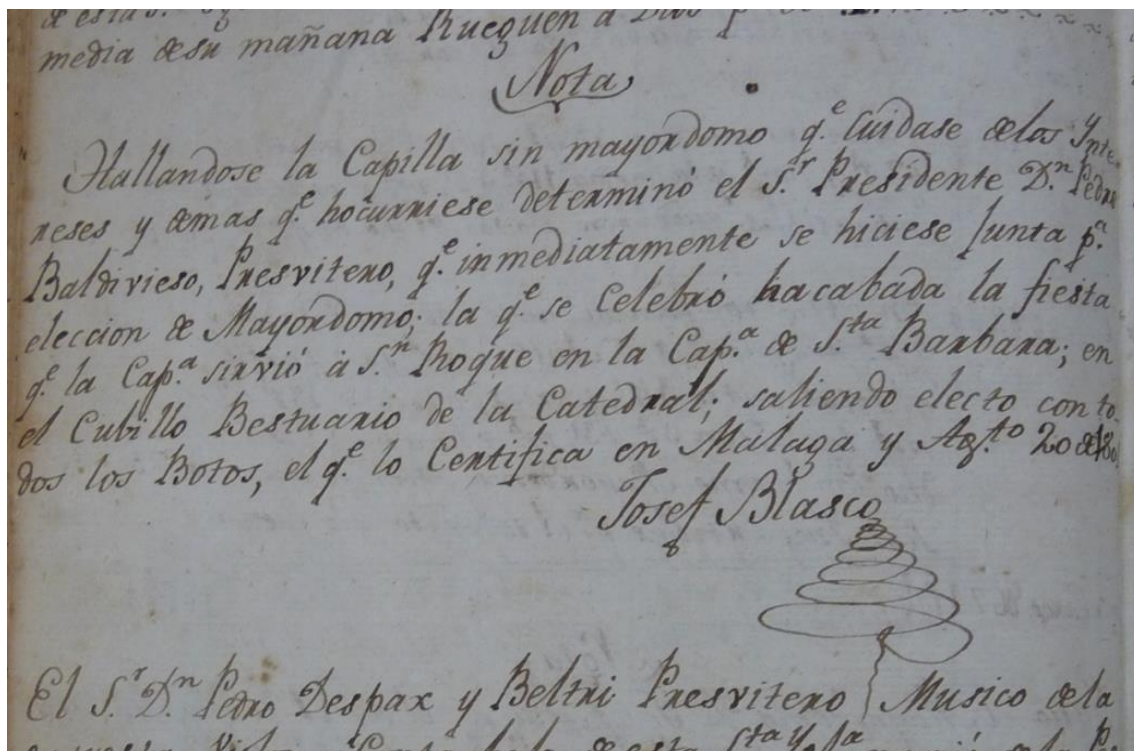 media de su mañana Rueguen a Dios p.
Nota
Hallandose la Capilla sin mayordomo q.e Cuidase de los Ynte
reses y demas q.e hocurriese determinó el S.r Presidente D.n Pedro
Baldivieso, Presvitero, q.e inmediatamente se hiciese Junta p.a
eleccion de Mayordomo; la q.e se Celebró hacabada la fiesta
q.e la Cap.a sirvió á S.n Roque en la Cap.a de S.ta Barbara; en
el Cubillo Bestuario de la Catedral; saliendo electo con to
dos los Botos, el q.e lo Certifica en Malaga y Ag.to 20 de
Josef Blasco
El S.r D.n Pedro Despax y Beltri Presvitero Musico de la